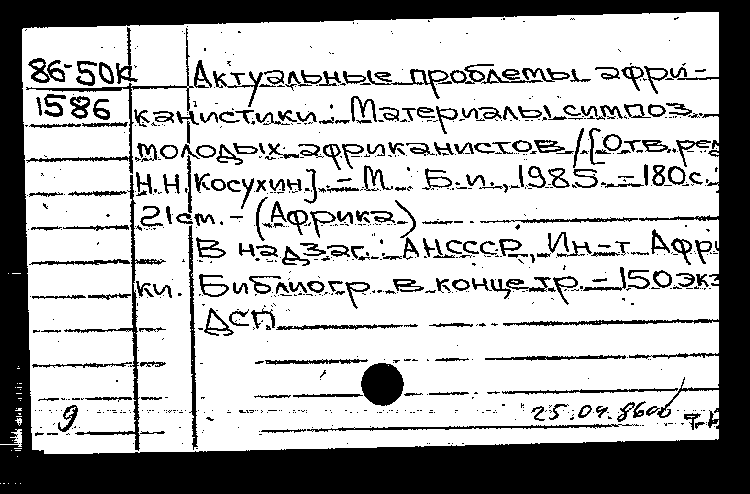 86-50К
1586
Актуальные проблемы афри-
канистики: Материалы симпоз.
молодых африканистов / [Отв. ред
Н.Н. Косухин]. – М.: Б.и., 1985. – 180 с.;
21 cm. – (Африка)
В надзаг.: АН СССР, Ин-т Афри
ки. Библиогр. в конце тр. – 150 экз
ДСП
9
25.04.86